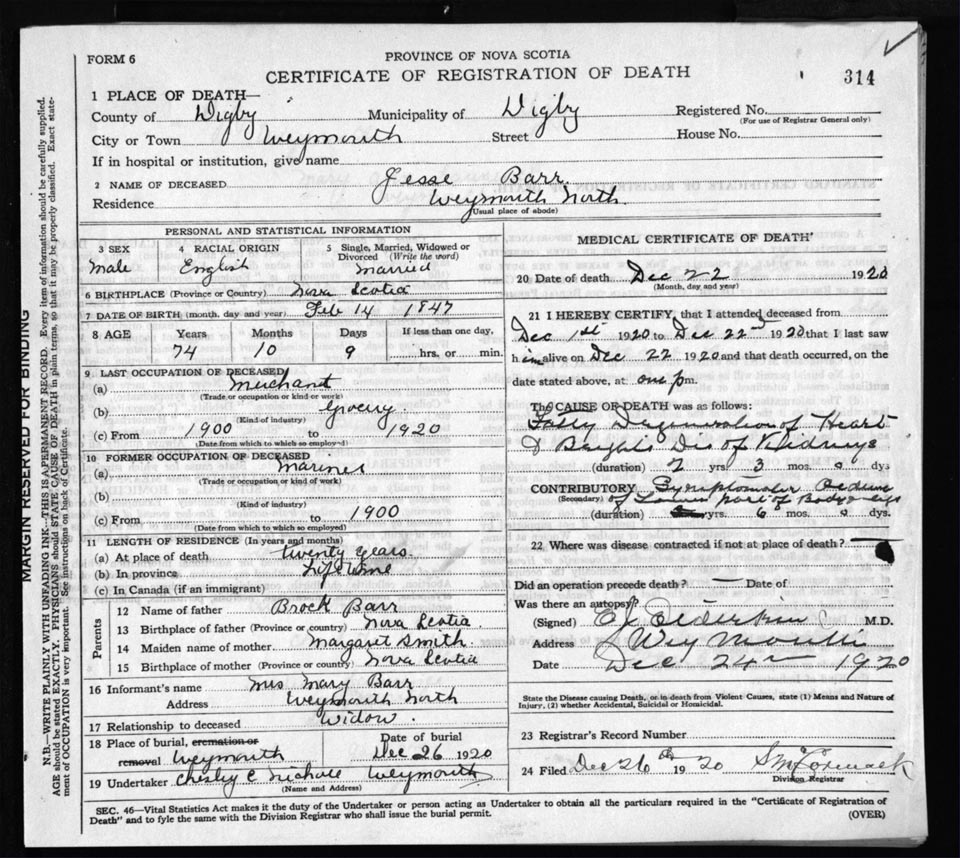 FORM 6
PROVINCE OF NOVA SCOTIA
CERTIFICATE OF REGISTRATION OF DEATH
314
1 PLACE OF DEATH—
County of Digby Municipality of Digby Registered No.
(For use of Registrar General only)
City or Town Weymouth Street House No.
If in hospital or institution, give name
2 NAME OF DECEASED Jesse Barr.
Residence Weymouth North.
(Usual place of abode)
PERSONAL AND STATISTICAL INFORMATION
3 SEX 4 RACIAL ORIGIN 5 Single, Married, Widowed or
Divorced (Write the word)
Male English Married
6 BIRTHPLACE (Province or Country) Nova Scotia
7 DATE OF BIRTH (month, day and year) Feb 14 1847
8 AGE Years Months Days If less than one day,
74 10 9 hrs. or min.
9 LAST OCCUPATION OF DECEASED
(a) Merchant
(Trade or occupation or kind or work)
(b) Grocery.
(Kind of industry)
(c) From 1900 to 1920
(Date from which to which so employed)
10 FORMER OCCUPATION OF DECEASED
(a) Mariner
(Trade or occupation or kind of work)
(b)
(Kind of industry)
(c) From to 1900
(Date from which to which so employed)
11 LENGTH OF RESIDENCE (In years and months)
(a) At place of death twenty years.
(b) In province Life time
(c) In Canada (if an immigrant)
Parents
12 Name of father Brock Barr
13 Birthplace of father (Province or country) Nova Scotia
14 Maiden name of mother Margaret Smith
15 Birthplace of mother (Province or country) Nova Scotia
16 Informant's name Mrs Mary Barr
Address Weymouth North
17 Relationship to deceased Widow.
18 Place of burial, cremation or Date of burial
removal Weymouth Dec 26 1920
19 Undertaker Weymouth
(Name and Address)
MEDICAL CERTIFICATE OF DEATH
20 Date of death Dec 22 1920
(Month, day and year)
21 I HEREBY CERTIFY, that I attended deceased from
Dec 1st 1920 to Dec 22nd 1920 that I last saw
him alive on Dec 22 1920 and that death occurred, on the
date stated above, at one p m.
The CAUSE OR DEATH was as follows:
Fatty Degeneration of Heart
& Brights Dis of Kidneys
(duration) 2 yrs 3 mos. 0 dys
CONTRIBUTORY
(Secondary) of Lower part of Body & legs
(duration) yrs. 6 mos. 0 dys.
22 Where was disease contracted if not at place of death? —
Did an operation precede death? — Date of
Was there an autopsy?
(Signed) M.D.
Address Weymouth
Date Dec 24 1920
State the Disease causing Death, or in death from Violent Causes, state (1) Means and Nature of
Injury, (2) whether Accidental, Suicidal or Homicidal.
23 Registrar's Record Number
24 Filed Dec 26 1920 McCormack
Division Registrar
SEC. 46—Vital Statistics Act makes it the duty of the Undertaker or person acting as Undertaker to obtain all the particulars required in the "Certificate of Registration of
Death" and to fyle the same with the Division Registrar who shall issue the burial permit. (OVER)
MARGIN RESERVED FOR BINDING
N.B.—WRITE PLAINLY WITH UNFADING INK—THIS IS A PERMANENT RECORD. Every item of information should be carefully supplied.
AGE should be stated EXACTLY. PHYSICIANS should STATE CAUSE OF DEATH in plain terms, so that it may be properly classified. Exact state-
ment of OCCUPATION is very important. See instructions on back of Certificate.